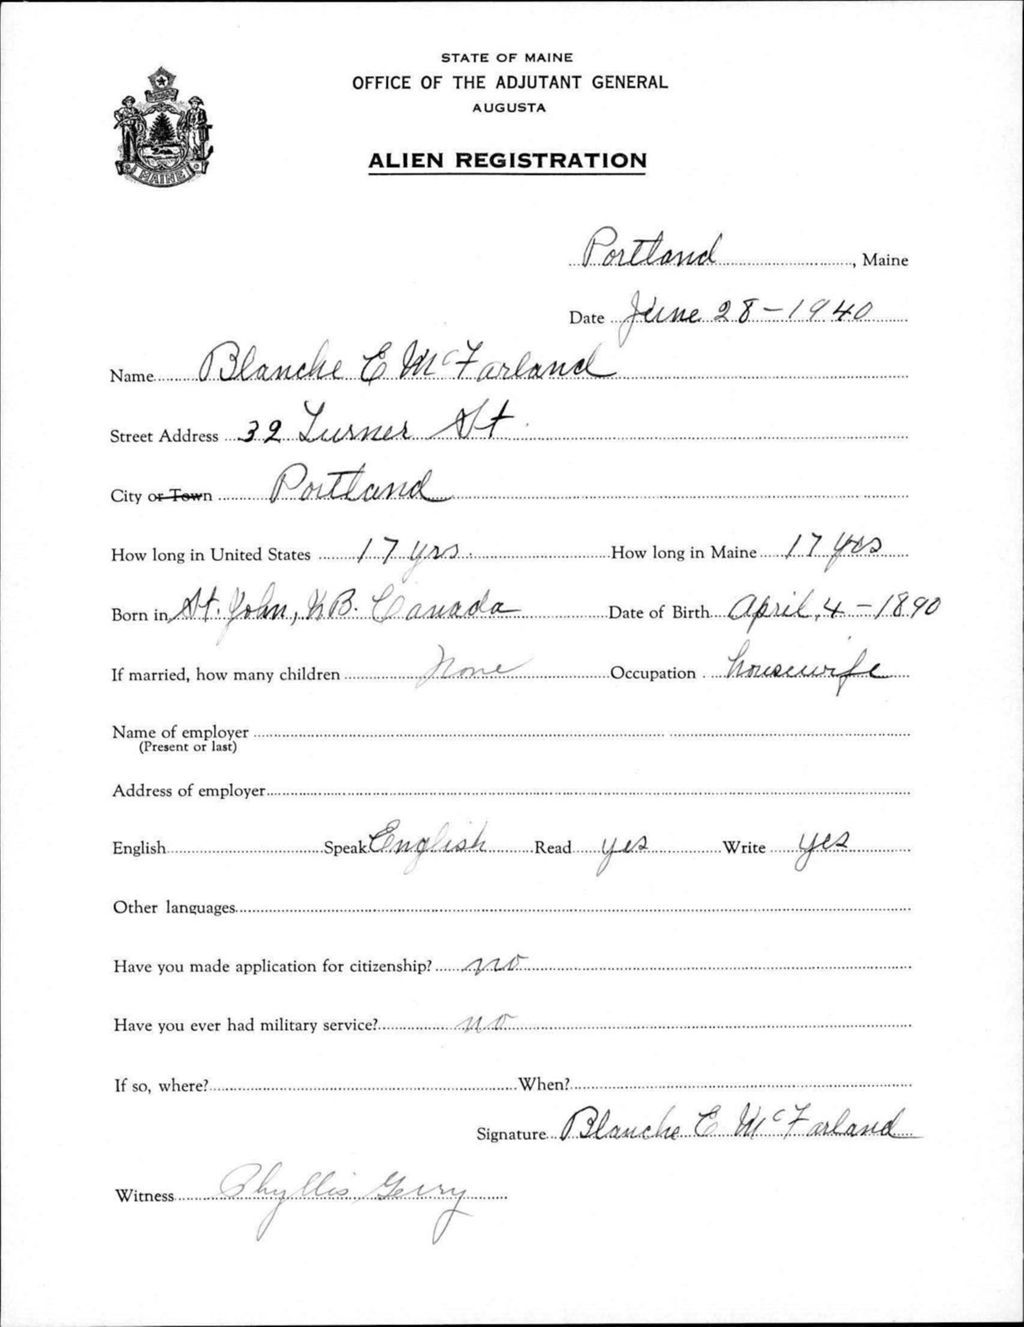 STATE OF MAINE
OFFICE OF THE ADJUTANT GENERAL
AUGUSTA
ALIEN REGISTRATION
MAINE
Portland, Maine
Date June 28-1940
Name Blanche E McFarland
Street Address 32 Turner St.
City or Town Portland
How long in United States 17 yrs. How long in Maine 17 yrs
Born in St. John, N.B. Canada Date of Birth April 4-1890
If married, how many children None Occupation housewife
Name of employer
(Present or last)
Address of employer
English Speak English Read yes Write yes
Other languages
Have you made application for citizenship? no
Have you ever had military service? no
If so, where? When?
Signature Blanche E. McFarland
Witness Phyllis Gerry